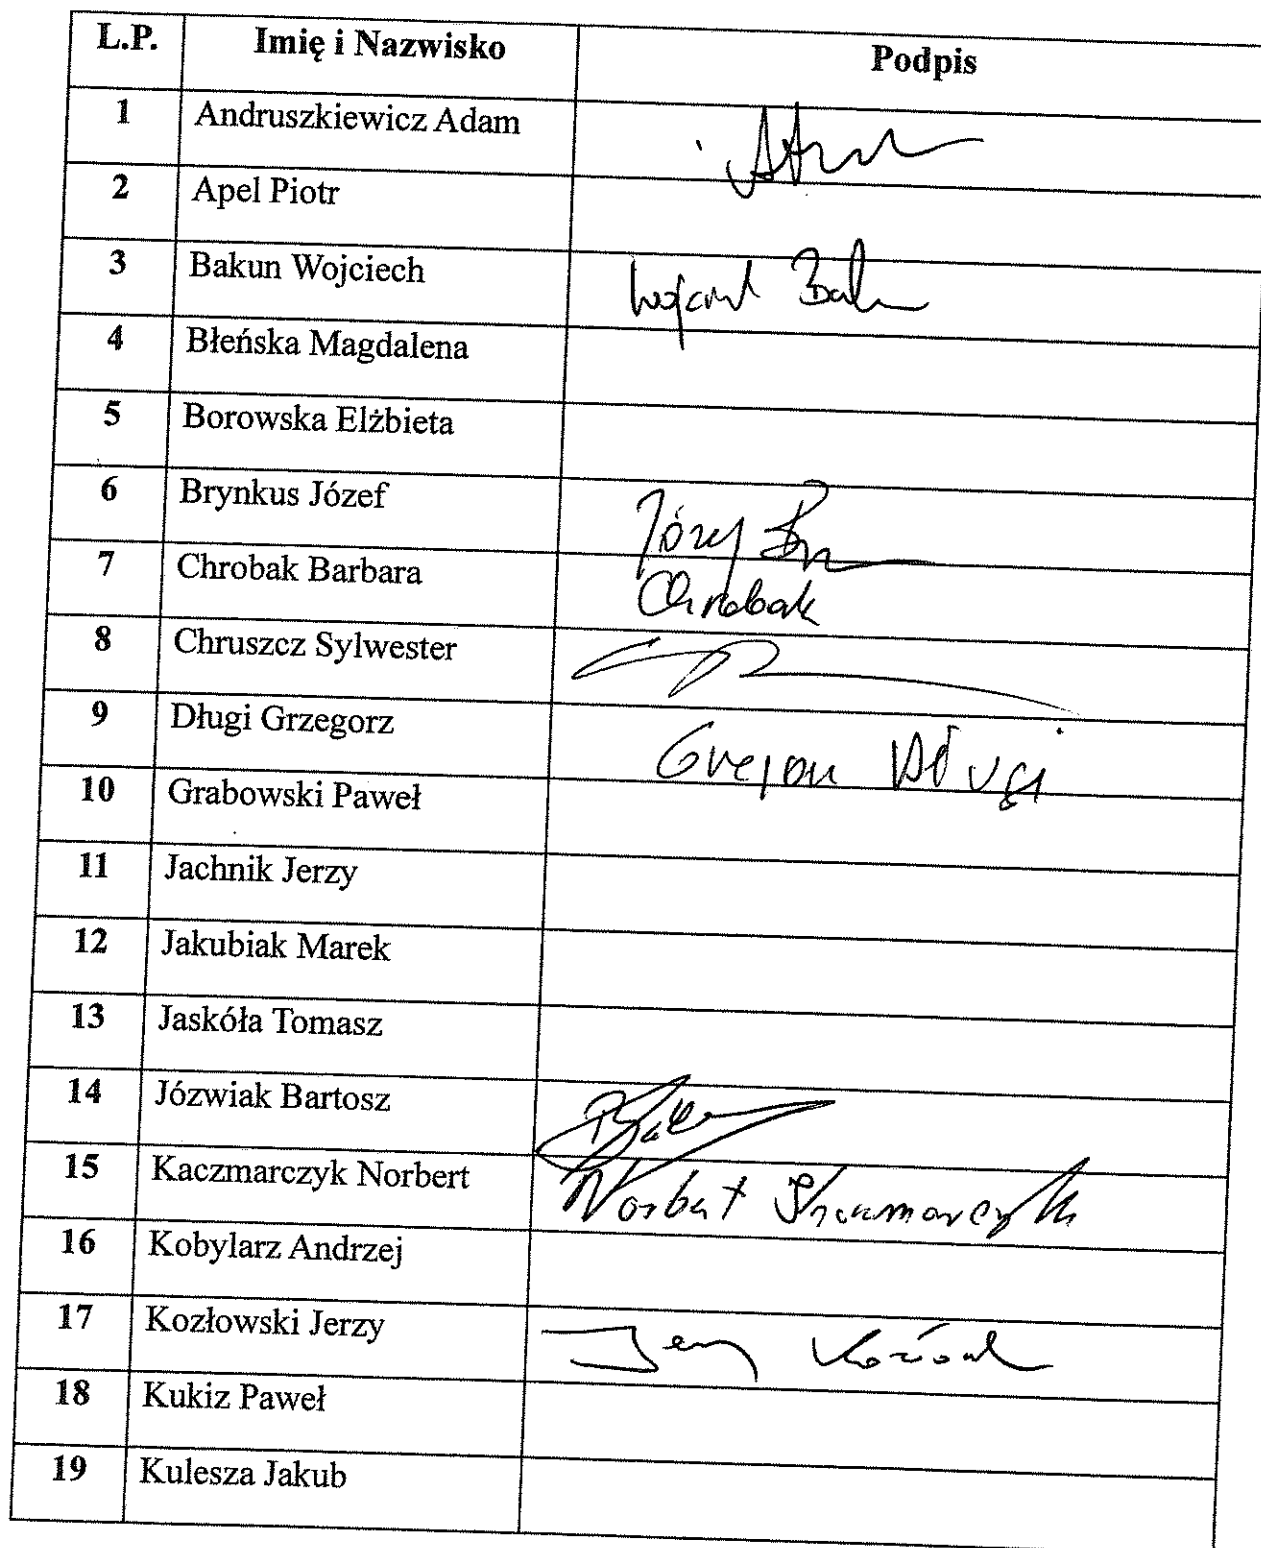 L.P. Imię i Nazwisko Podpis
1 Andruszkiewicz Adam
2 Apel Piotr
3 Bakun Wojciech
4 Błeńska Magdalena
5 Borowska Elżbieta
6 Brynkus Józef Józef
7 Chrobak Barbara Chrobak
8 Chruszcz Sylwester
9 Długi Grzegorz Długi
10 Grabowski Paweł
11 Jachnik Jerzy
12 Jakubiak Marek
13 Jaskóła Tomasz
14 Józwiak Bartosz
15 Kaczmarczyk Norbert Norbert Kaczmarczyk
16 Kobylarz Andrzej
17 Kozłowski Jerzy Jerzy
18 Kukiz Paweł
19 Kulesza Jakub